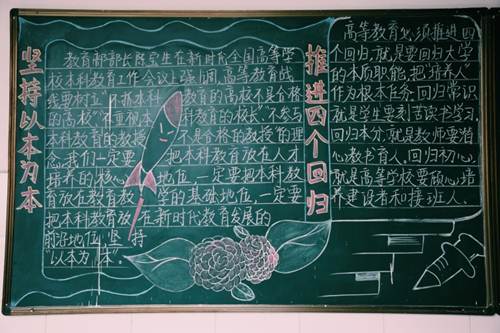 坚持以本为本
教育部部长陈宝生在新时代全国高等学
校本科教育工作会议上强调,高等教育战
线要树立"不抓本科教育的高校不是合格
的高校""不重视本科教育的校长""不参与
本科教育的教授不是合格的教授"的理
念,我们一定要把本科教育放在人才
培养的核心地位,一定要把本科教
育放在教育教学的基础地位,一定要
把本科教育放在新时代教育发展的
前沿地位,坚持
"以本为本"。
推进四个回归
高等教育必须推进四
个回归,就是要回归大学
的本质职能,把"培养人"
作为根本任务。回归常识
就是学生要刻苦读书学习。
回归本分,就是教师要潜
心教书育人。回归初心,
就是高等学校要倾心培
养建设者和接班人。